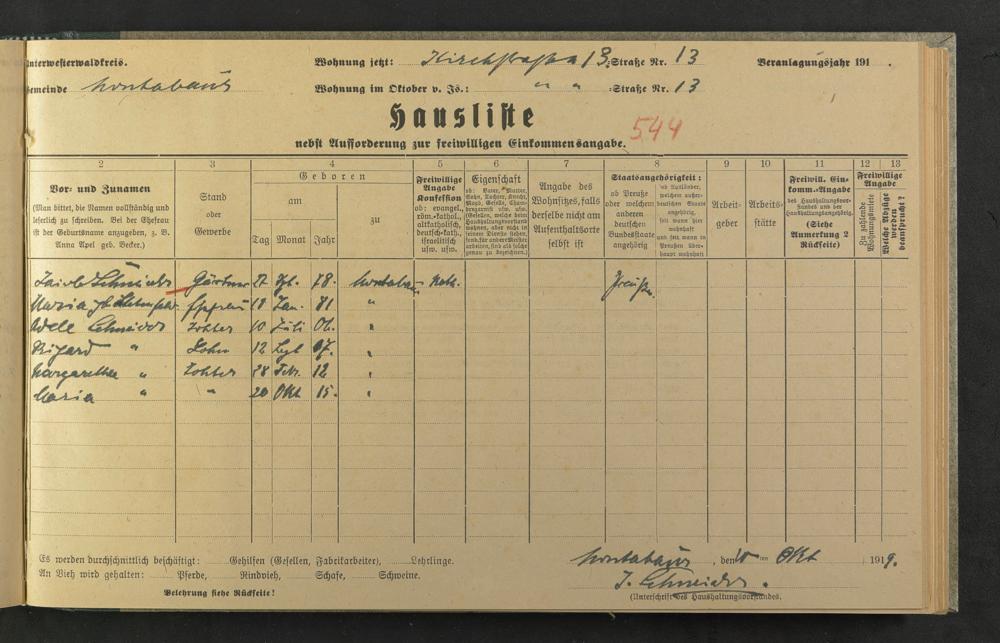 Unterwesterwaldkreis.
Wohnung jetzt: Kirchstraße 13 Straße Nr. 13
Veranlagungsjahr 191 .
Gemeinde Montabaur
Wohnung im Oktober v. Js.: " " Straße Nr. 13
Hausliste
544
nebst Aufforderung zur freiwilligen Einkommensangabe.
2 3 4 5 6 7 8 9 10 11 12 13
Vor- und Zunamen
(Man bittet, die Namen vollständig und
leserlich zu schreiben. Bei der Ehefrau
ist der Geburtsname anzugeben, z. B.
Anna Apel geb. Becker.)
Stand
oder
Gewerbe
Geboren
am
zu
Tag Monat Jahr
Freiwillige
Angabe
Konfession
ob: evangel.,
röm.-kathol.,
altkatholisch,
deutsch-kath.,
israelitisch
usw. usw.
Eigenschaft
ob: Vater, Mutter,
Sohn, Tochter, Knecht,
Magd, Geselle,
Angabe des
Wohnsitzes, falls
derselbe nicht am
Aufenthaltsorte
selbst ist
Staatsangehörigkeit:
ob Preuße
oder welchem
anderen
deutschen
Bundesstaate
angehörig
ob Ausländer,
welchem außer-
deutschen Staate
angehörig,
seit wann hier
wohnhaft
und seit wann in
Preußen über-
haupt wohnhaft
Arbeit-
geber
Arbeits-
stätte
Freiwill. Ein-
komm.-Angabe
des Haushaltungsvor-
standes und der
Haushaltungsangehörig.
(Siehe
Anmerkung 2
Rückseite)
Freiwillige
Angabe
Zu zahlende
Wohnungsmiete
Welche Abzüge
werden
beansprucht?
Schneider Gärtner 27 78. Montabaur Kath. Preuße
Maria Ehefrau 18 Jan. 81 "
Schneider Tochter 10 Juli 06. "
" Sohn 12 07. "
Margarethe " Tochter 28 Febr. 12 "
Maria " " 20 Okt 15. "
Es werden durchschnittlich beschäftigt: Gehilfen (Gesellen, Fabrikarbeiter), Lehrlinge.
An Vieh wird gehalten: Pferde, Rindvieh, Schafe, Schweine.
Belehrung siehe Rückseite!
Montabaur, den 10 ten Okt 1919.
J. Schneider.
(Unterschrift des Haushaltungsvorstandes.